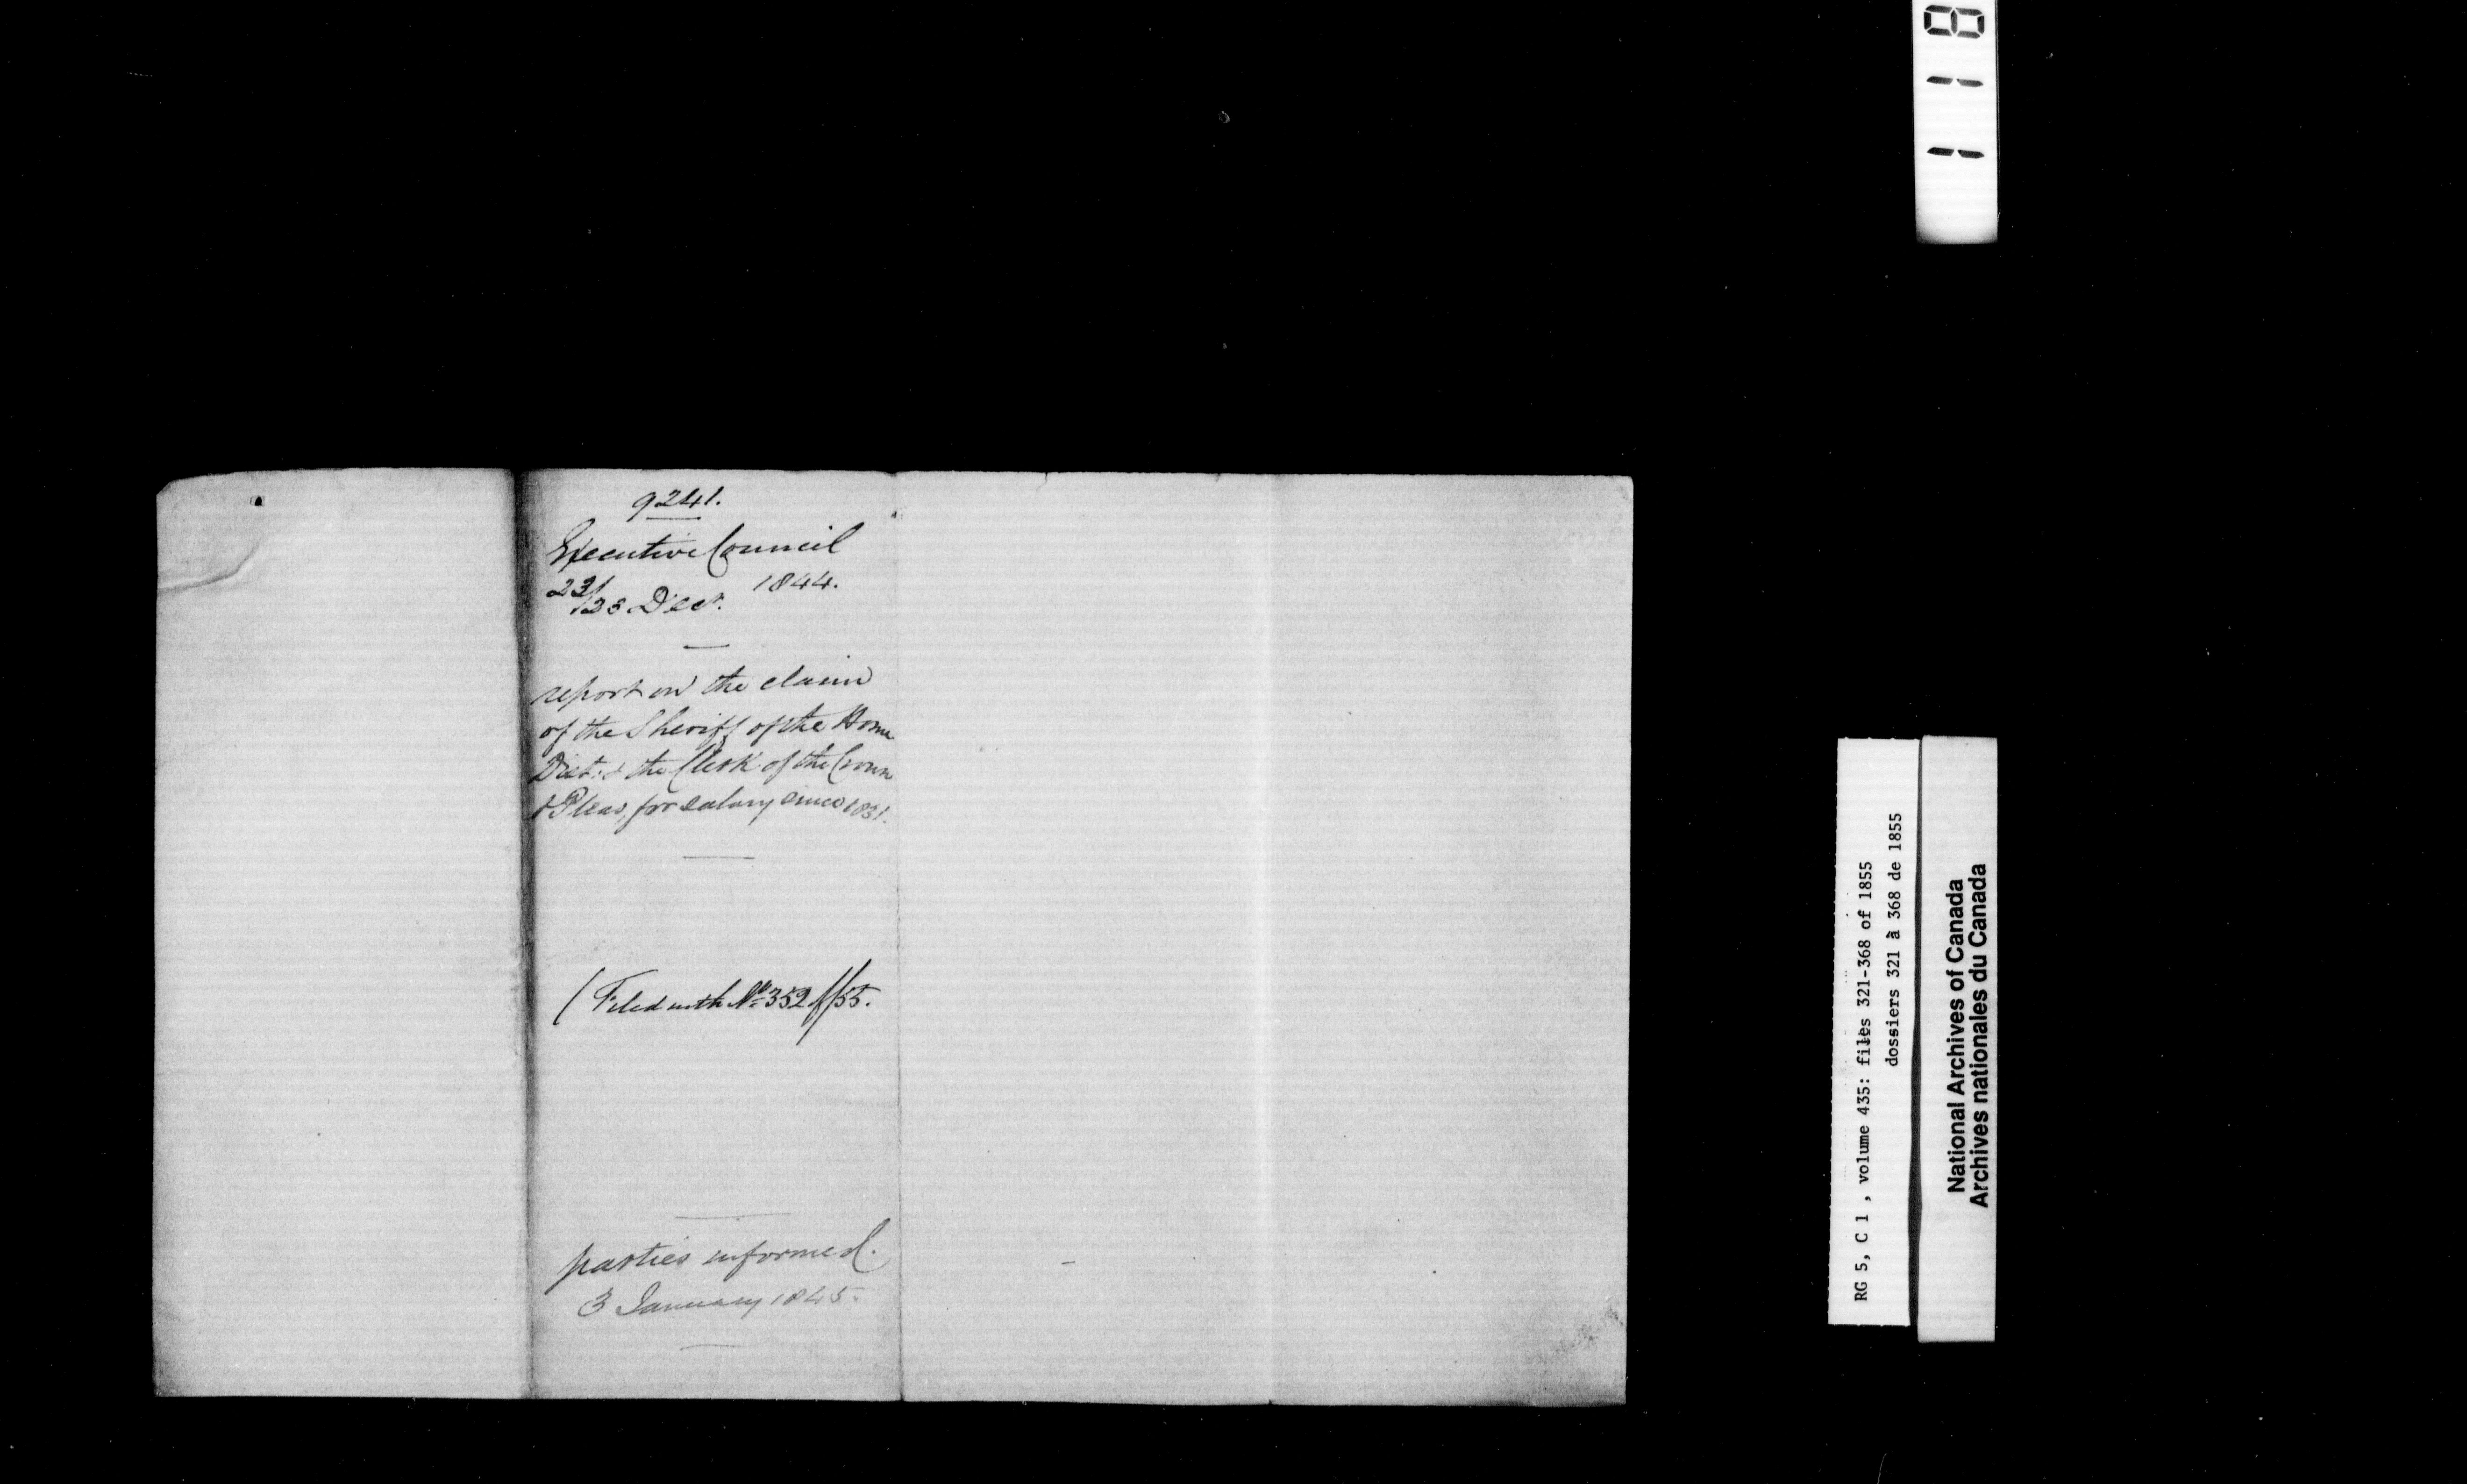 9241.
Executive Council
23/28 Decr. 1844.
report on the claim
of the Sheriff of the Home
Dist. & the Clerk of the Crown
& Pleas, for salary since 1831.
(Filed with No 352 of/55.
parties informed.
3 January 1845.
118
RG 5, C 1 , volume 435: files 321-368 of 1855
dossiers 321 à 368 de 1855
National Archives of Canada
Archives nationales du Canada